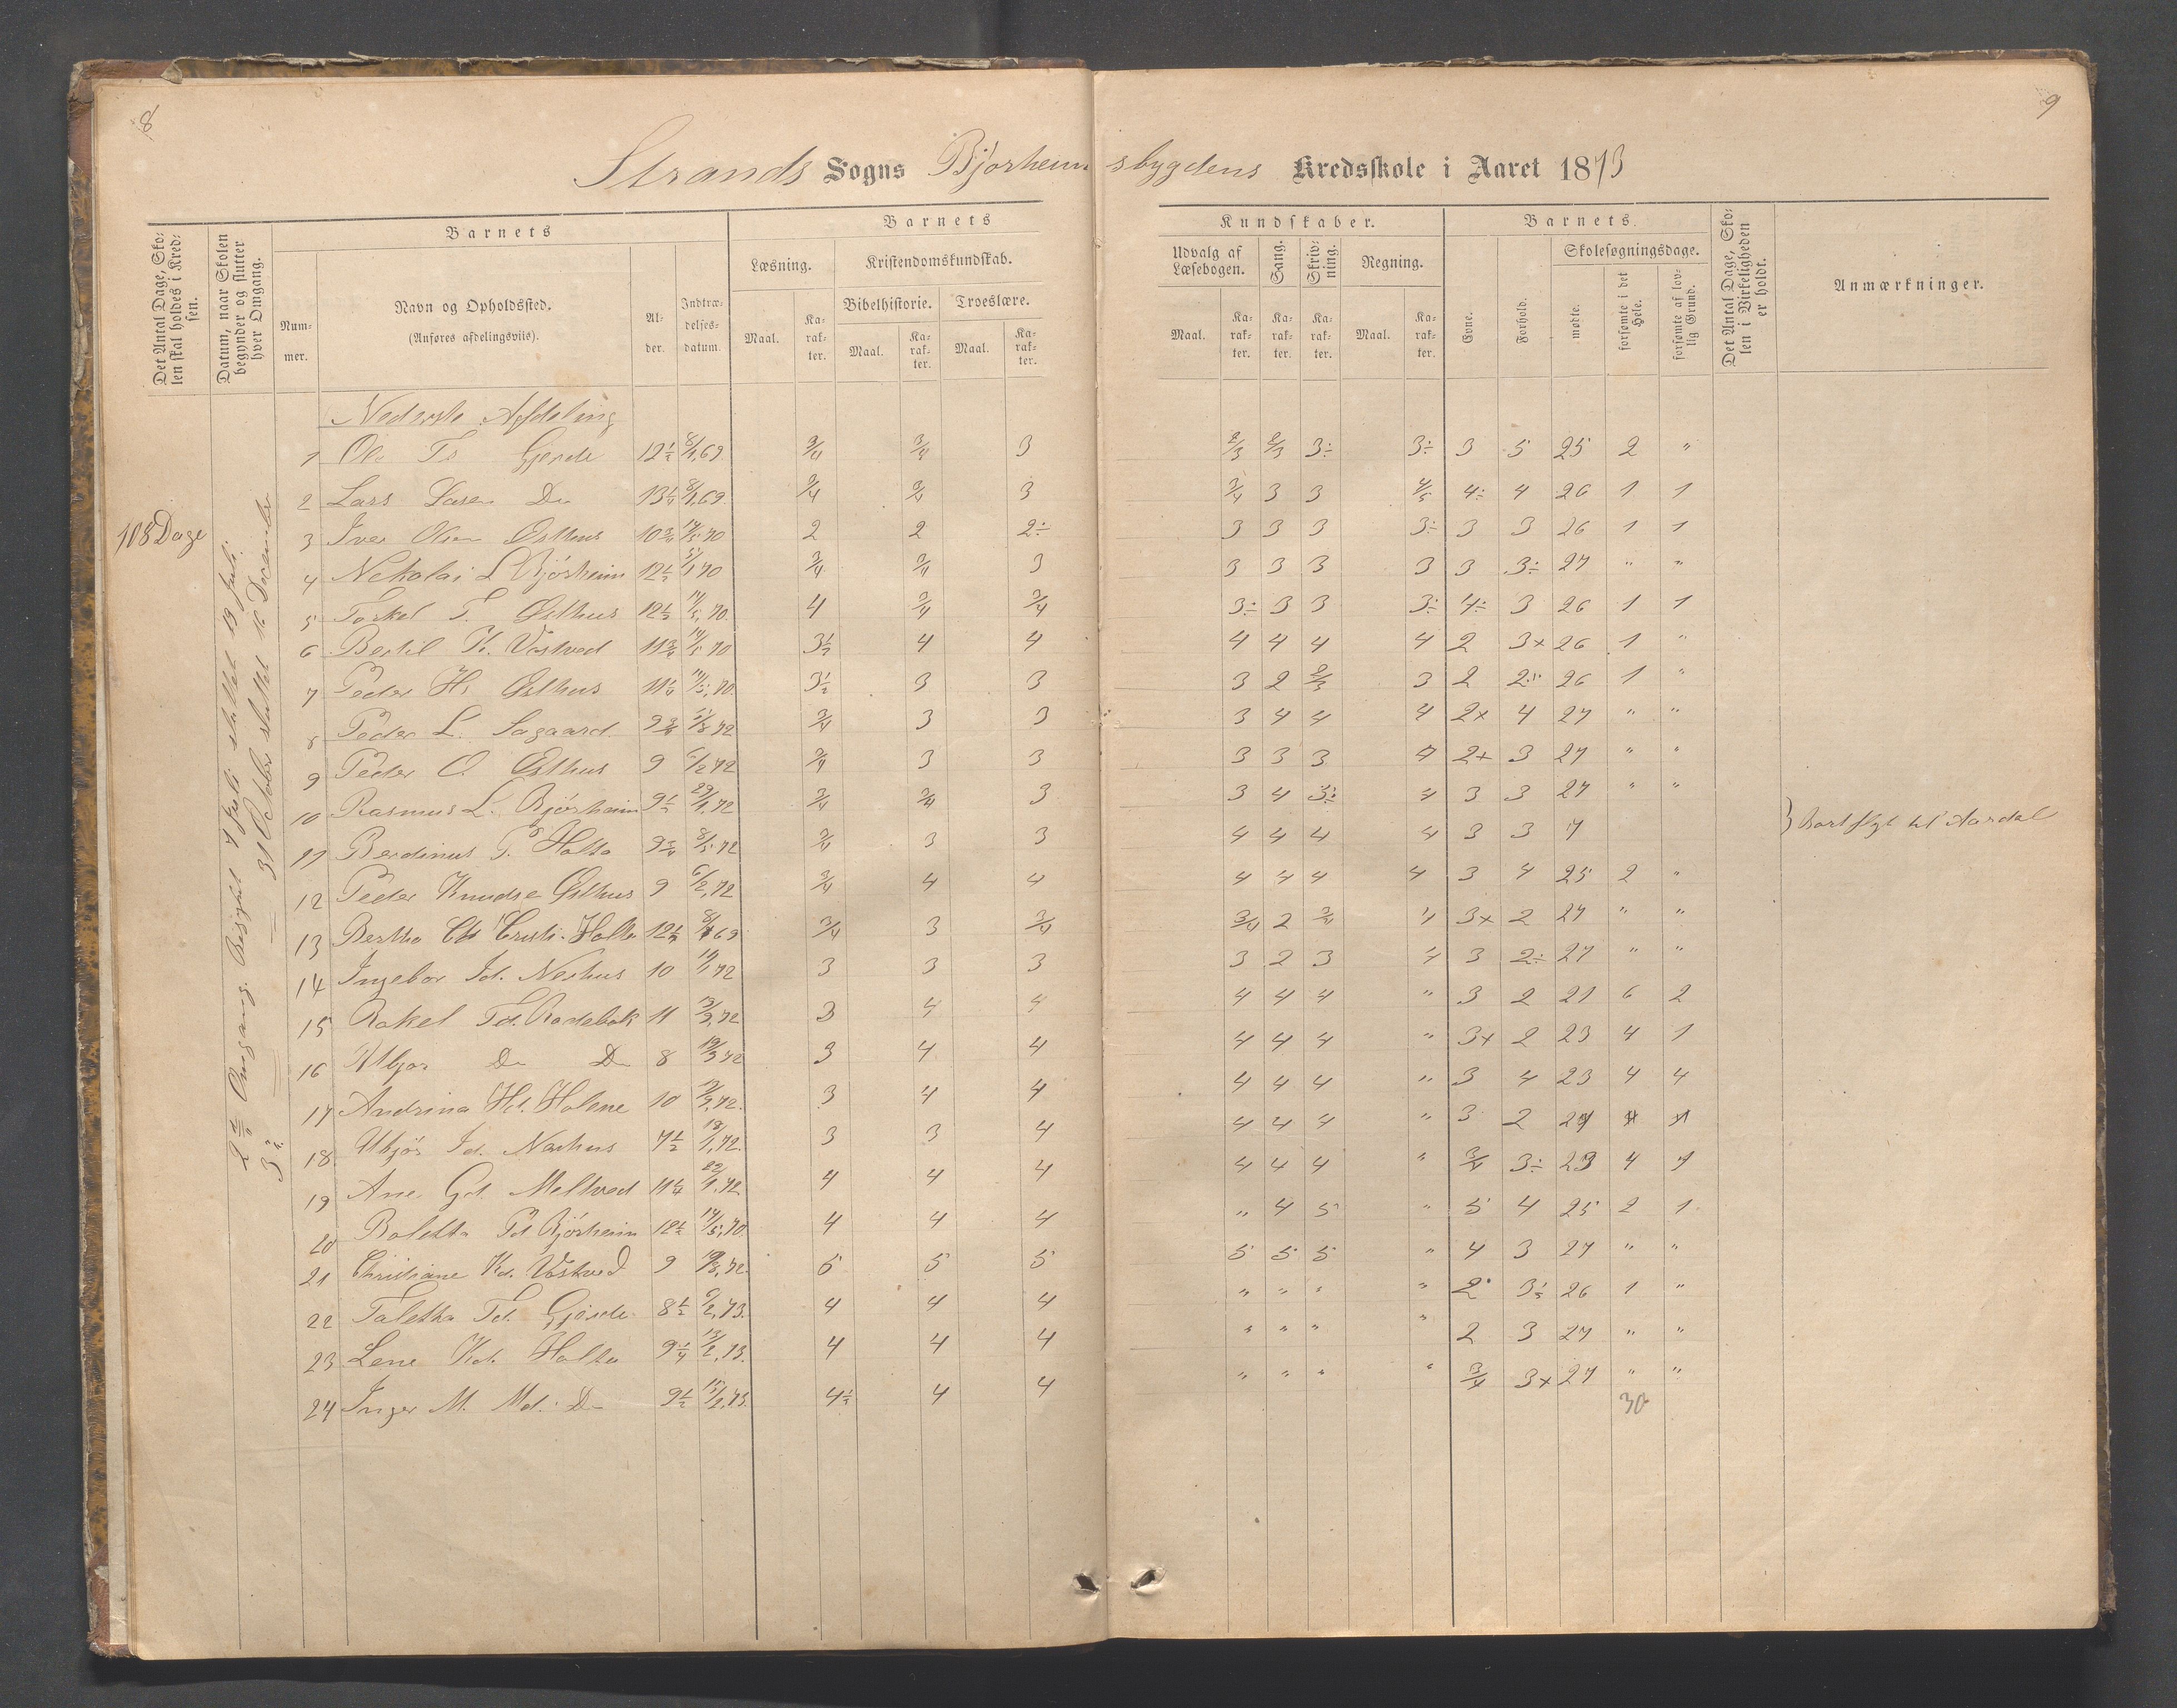 8
9
Strands Sogns Bjorheimsbygdens Kredsskole i Aaret 1873
Det Antal Dage, Skolen skal holdes i Kredsen.
Datum, naar Skolen begynder og slutter hver Omgang.
Barnets
Nummer.
Navn og Opholdssted.
(Anføres afdelingsviis).
Alder.
Indtrædelsesdatum.
Barnets
Læsning.
Kristendomskundskab.
Bibelhistorie. Troeslære.
Maal. Karakter. Maal. Karakter. Maal. Karakter.
Kundskaber.
Udvalg af Læsebogen.
Sang.
Skrivning.
Regning.
Maal. Karakter. Karakter. Karakter. Maal. Karakter.
Barnets
Evne.
Forhold.
Skolesøgningsdage.
mødte.
forsømte i det Hele.
forsømte af lovlig Grund.
Det Antal Dage, Skolen i Virkeligheden er holdt.
Anmærkninger.
108 Dage
2 Omgang. Begyndt 7 Juli sluttet 19 Juli.
3 31 October sluttet 16 December
Nederste Afdeling
1 Ole Ts Gjerde 12½ 8/1,69 3/4 3/4 3 2/3 2/3 3÷ 3÷ 3 5 25 2 "
2 Lars Larsen Do 13¼ 8/1,69. 3/4 3/4 3 3/4 3 3 4/5 4÷ 4 26 1 1
3 Iver Olsen Østhus 10¾ 14/5,70 2 2 2÷ 3 3 3 3÷ 3 3 26 1 1
4 Nekolai L Bjórheim 12½ 5/1 70 3/4 3/4 3 3 3 3 3 3 3÷ 27 " "
5 Torkel T. Østhus 12½ 14/5,70. 4 3/4 3/4 3÷ 3 3 3÷ 4÷ 3 26 1 1
6 Bertil K. Vostved 11¾ 14/5 70 3½ 4 4 4 4 4 4 2 3× 26 1 "
7 Peder H. Østhus 11¼ 14/5,70. 3½ 3 3 3 2 2/3 3 2 2÷ 26 1 "
8 Peder L. Sagaard 3/4 3 3 3 4 4 4 2× 4 27 " "
9 Peder O. Østhus 9 6/2 72 3/4 3 3 3 3 3 4 2× 3 27 " "
10 Rasmus L. Bjórheim 9½ 29/1,72 3/4 3/4 3 3 4 3÷ 4 3 3 27 " "
11 Berdinus P. Holta 3/4 3 3 4 4 4 4 3 3 7 til Aardal
12 Peder Knudse Østhus 9 6/2,72 3/4 4 4 4 4 4 4 3 4 25 2 "
13 Bertha Holta 12½ 3/4 3 3/4 3/4 2 3/4 4 3× 2 27 " "
14 Ingebor Id. Neshus 10 3 3 3 3 2 3 4 3 2÷ 27 " "
15 Rakel Td. Rodebak 11 13/3,72 3 4 4 4 4 4 " 3 2 21 6 2
16 Do Do 8 3 4 4 4 4 4 " 3× 2 23 4 1
17 Andrina Hd. Holene 10 3 4 4 4 4 4 " 3 4 23 4 4
18 Id. Neshus 7½ 3 3 4 4 4 4 " 3 2
19 Ane Gd. Meltved 11¼ 22/1,72 4 4 4 4 4 4 " 3/4 3÷ 23 4
20 Boletta Pd Bjórheim 12½ 14/5,70. 4 4 4 " 4 5 " 5 4 25 2 1
21 Christiane Kd. Vostved 9 5 5 5 5 5 5 " 4 3 27 " "
22 Taletha Td. Gjerde 8½ 4 4 4 " " " " 2 26 1 "
23 Lene Kd. Holta 9¼ 4 4 4 " " " " 2 3 27 " "
24 Inger M. Md. Do 9½ 4½ 4 4 " " " " 3/4 3× 27 " "
30